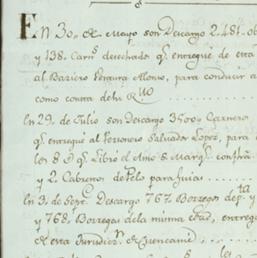 En 30. de Mayo son Descargo 2.481. 
y 138. Carn.s de techada q.e entregué de esta
al Baziero Ventura Alonso, para conducir a
como consta de su R.vo
En 29. de Julio son Descargo 3500 Carneros
q.e entregué al Personero Salvador Lopez, para
los 8 D q.e Libro el Amo S. Marq.s
y 2. Cabrunos de Pelo para Guias
En 3. de Sep.e Descargo 767. Borregos de p.ta
y 768. Borregas de la misma edad, entreg
de esta Jurudiz.n de Cuencamé